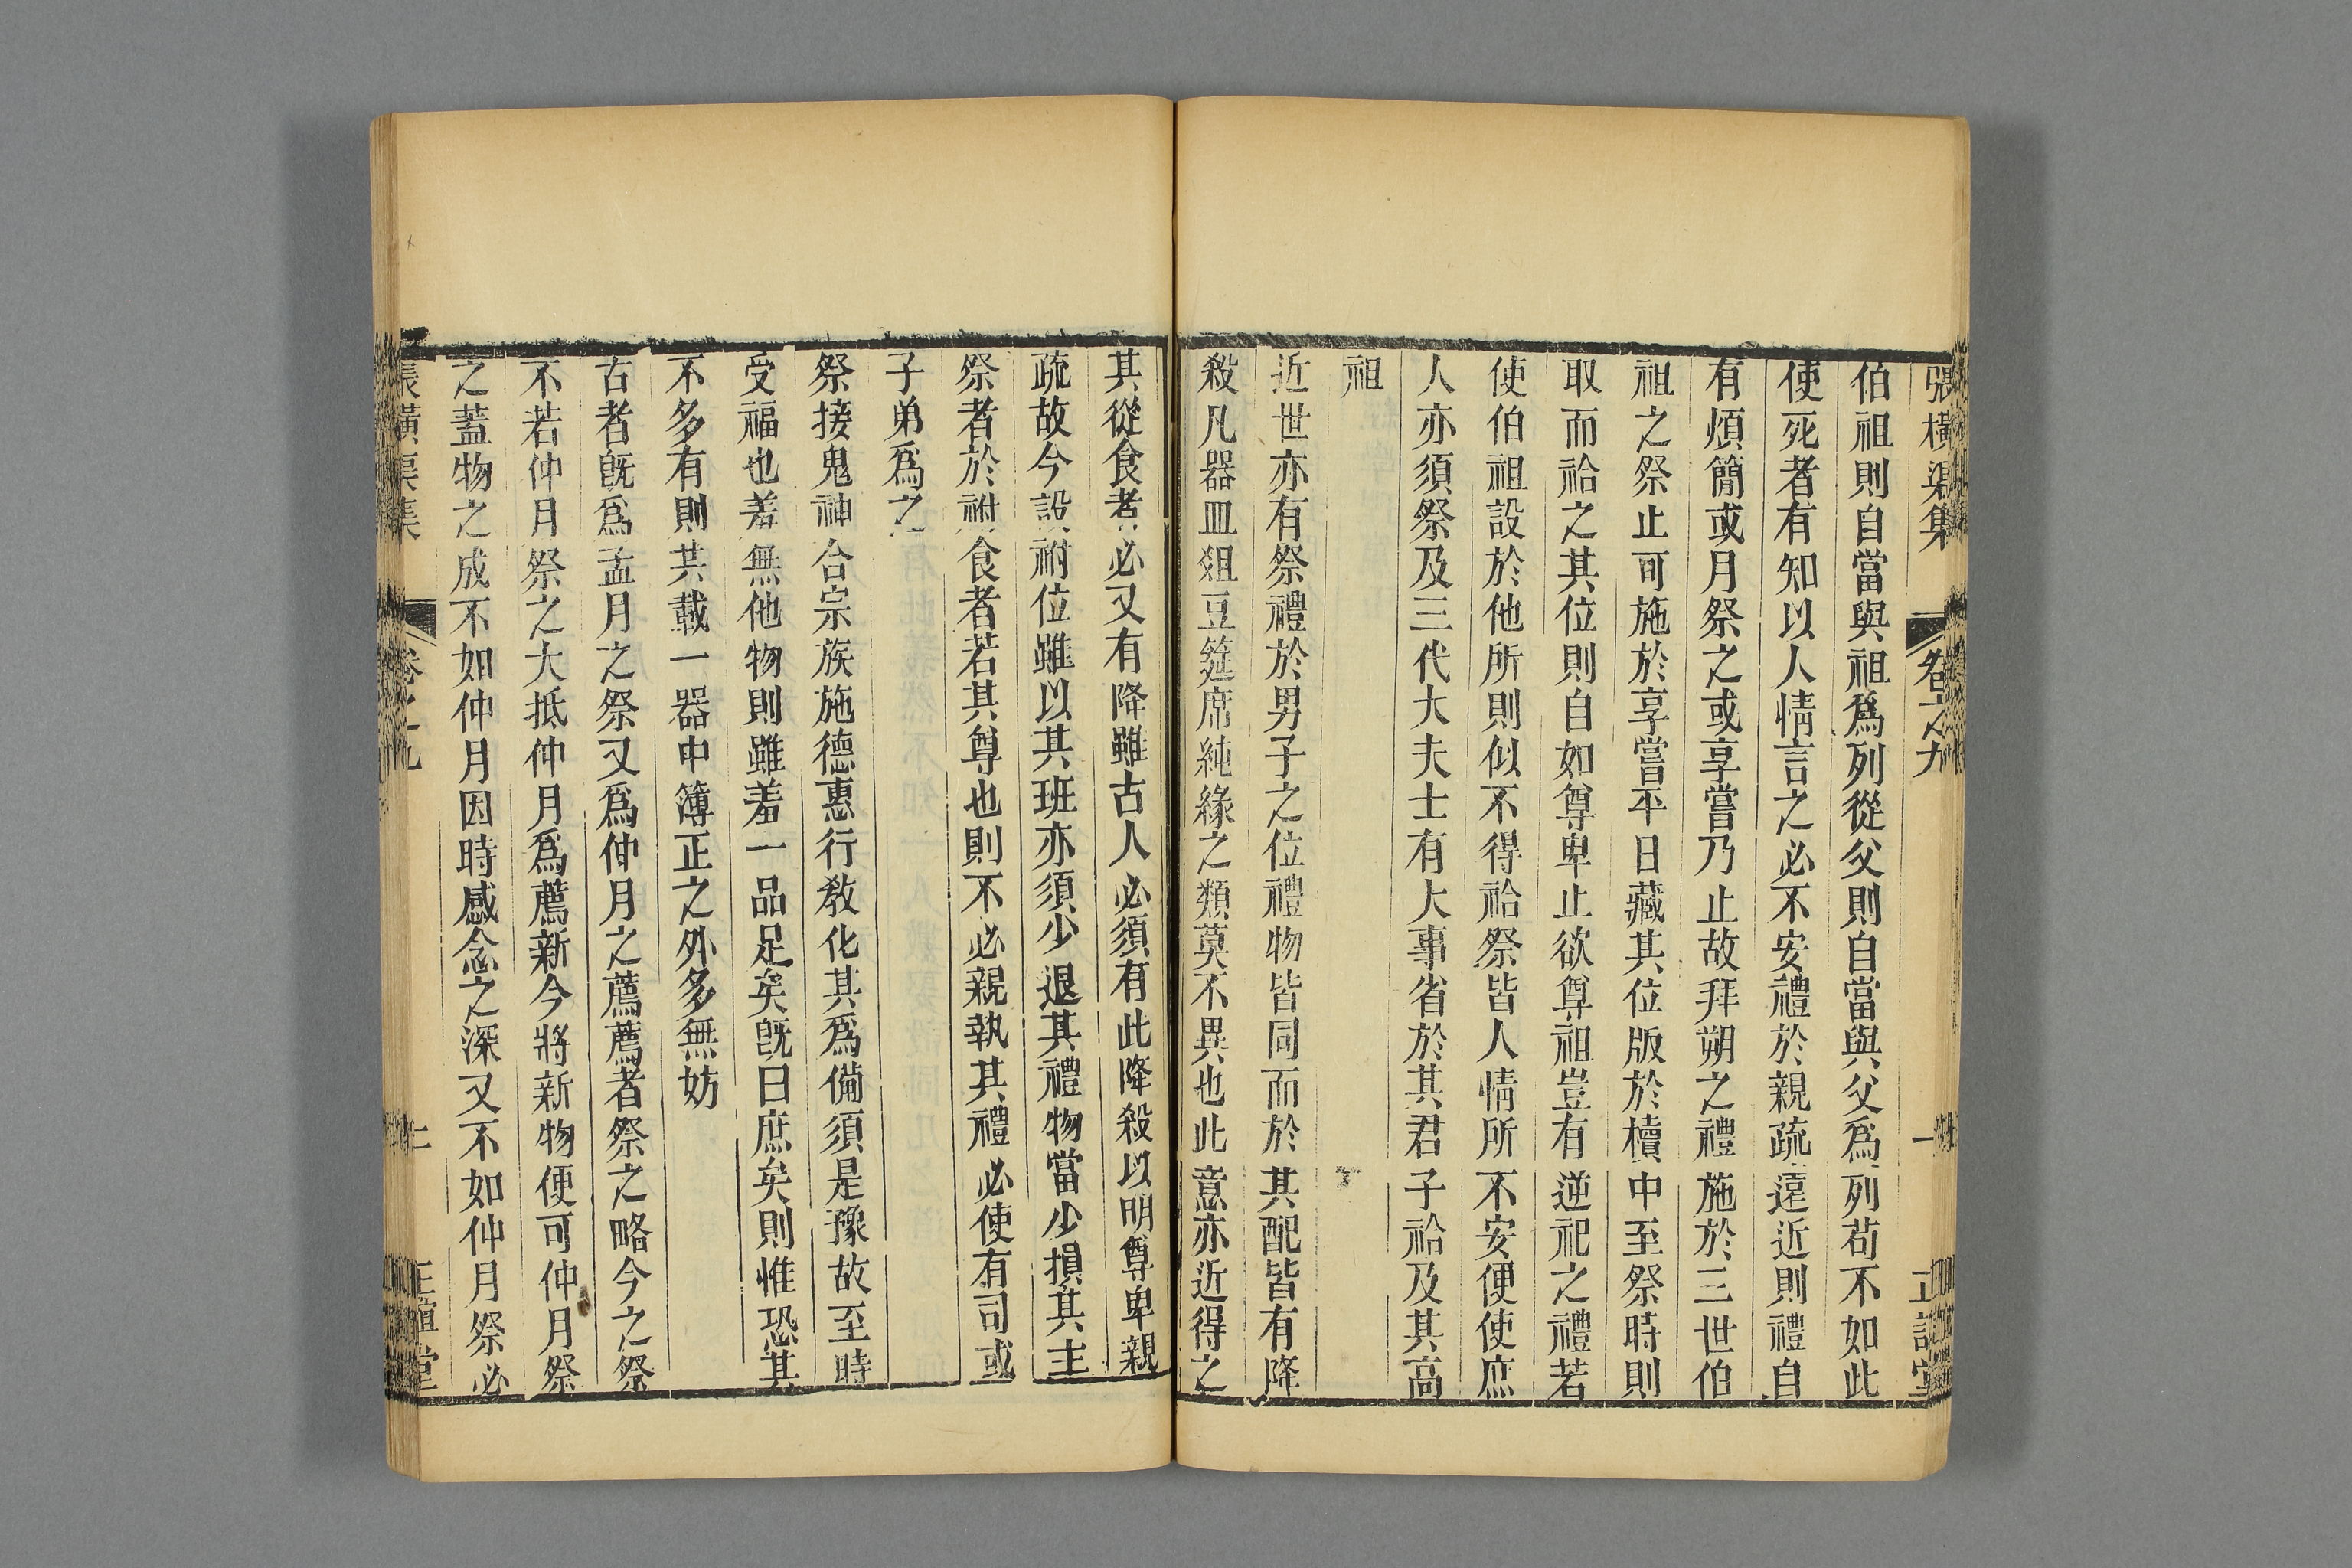 張橫渠集 卷之九 一 正誼堂
伯祖則自當與祖爲列從父則自當與父爲列苟不如此
使死者有知以人情言之必不安禮於親疏遠近則禮自
有煩簡或月祭之或享嘗乃止故拜朔之禮施於三世伯
祖之祭止可施於享嘗平日藏其位版於櫝中至祭時則
取而祫之其位則自如尊卑止欲尊祖豈有逆祀之禮若
使伯祖設於他所則似不得祫祭皆人情所不安便使庶
人亦須祭及三代大夫士有大事省於其君子祫及其高
祖
近世亦有祭禮於男子之位禮物皆同而於其配皆有降
殺凡器皿俎豆筵席純緣之類莫不異也此意亦近得之
其從食者必又有降雖古人必須有此降殺以明尊卑親
疏故今設祔位雖以其班亦須少退其禮物當少損其主
祭者於祔食者若其尊也則不必親執其禮必使有司或
子弟爲之
祭接鬼神合宗族施德惠行敎化其爲備須是豫故至時
受福也羞無他物則雖羞一品足矣旣曰庶矣則惟恐其
不多有則共載一器中簿正之外多無妨
古者旣爲孟月之祭又爲仲月之薦薦者祭之略今之祭
不若仲月祭之大抵仲月爲薦新今將新物便可仲月祭
之蓋物之成不如仲月因時感念之深又不如仲月祭必
張橫渠集 卷之九 二 正誼堂